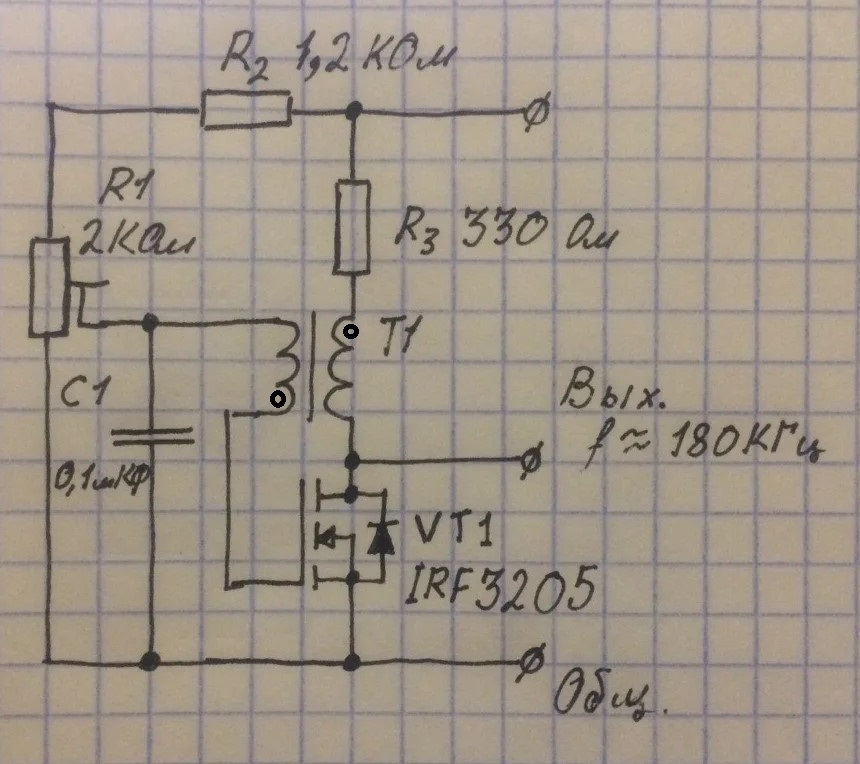 R2 1,2 КОм
R1
2КОм
R3 330 Ом
T1
C1
0,1мкФ
Вых.
f ≈ 180КГц
VT1
IRF3205
Общ.